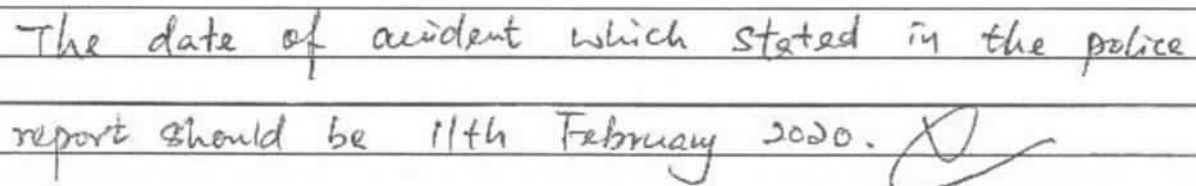 The date of accident which stated in the police
report should be 11th February 2020.